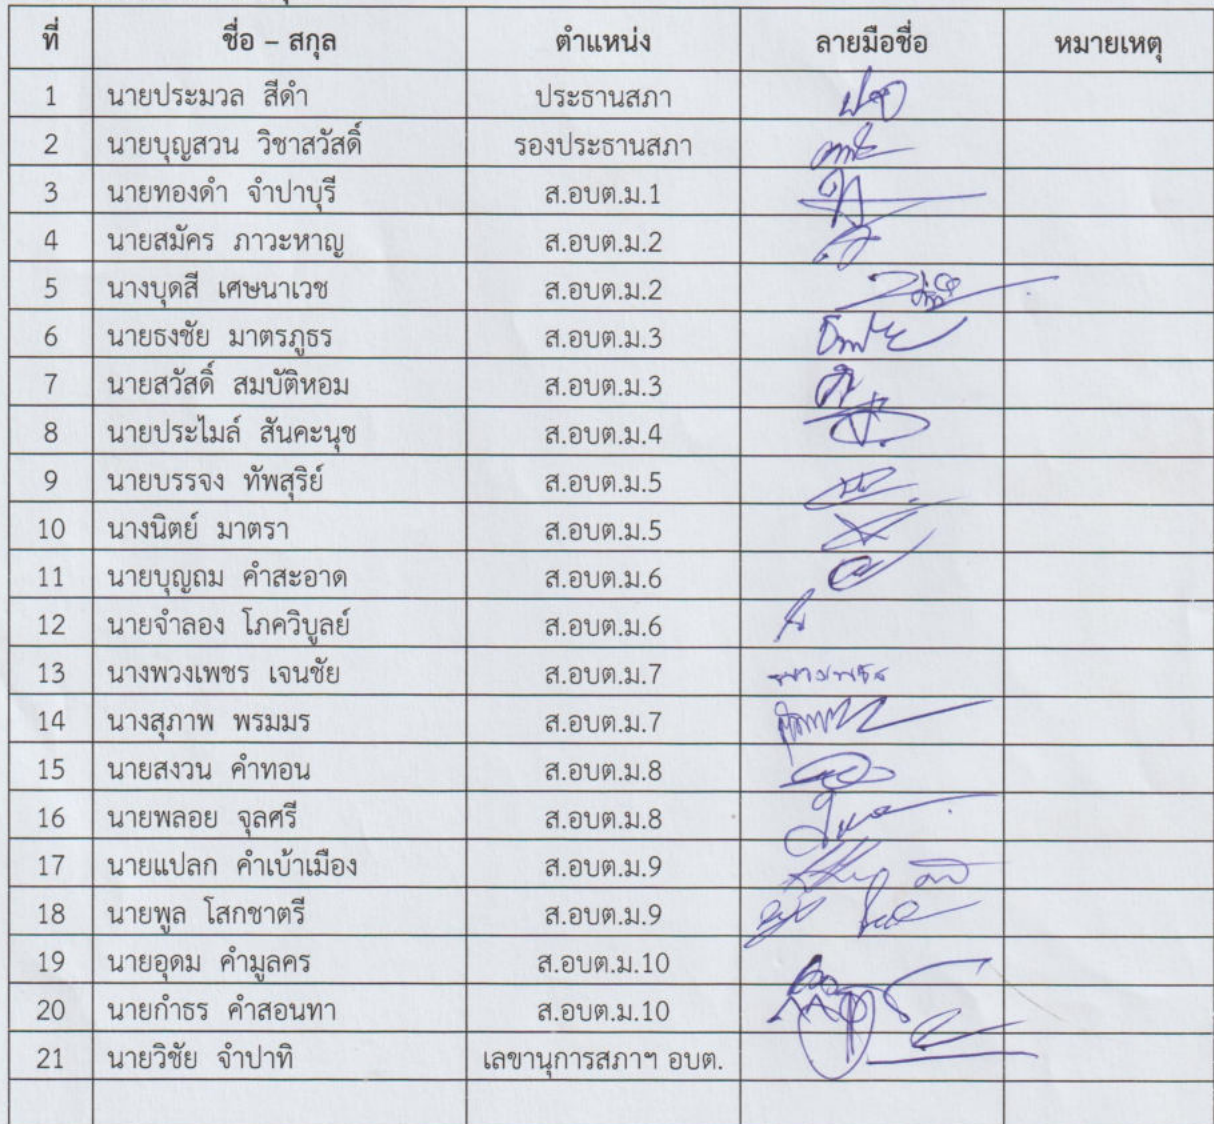 ที่ ชื่อ – สกุล ตำแหน่ง ลายมือชื่อ หมายเหตุ
1 นายประมวล สีดำ ประธานสภา
2 นายบุญสวน วิชาสวัสดิ์ รองประธานสภา
3 นายทองดำ จำปาบุรี ส.อบต.ม.1
4 นายสมัคร ภาวะหาญ ส.อบต.ม.2
5 นางบุดสี เศษนาเวช ส.อบต.ม.2
6 นายธงชัย มาตรภูธร ส.อบต.ม.3
7 นายสวัสดิ์ สมบัติหอม ส.อบต.ม.3
8 นายประไมล์ สันคะนุช ส.อบต.ม.4
9 นายบรรจง ทัพสุริย์ ส.อบต.ม.5
10 นางนิตย์ มาตรา ส.อบต.ม.5
11 นายบุญถม คำสะอาด ส.อบต.ม.6
12 นายจำลอง โภควิบูลย์ ส.อบต.ม.6
13 นางพวงเพชร เจนชัย ส.อบต.ม.7
14 นางสุภาพ พรมมร ส.อบต.ม.7
15 นายสงวน คำทอน ส.อบต.ม.8
16 นายพลอย จุลศรี ส.อบต.ม.8
17 นายแปลก คำเบ้าเมือง ส.อบต.ม.9
18 นายพูล โสกชาตรี ส.อบต.ม.9
19 นายอุดม คำมูลคร ส.อบต.ม.10
20 นายกำธร คำสอนทา ส.อบต.ม.10
21 นายวิชัย จำปาทิ เลขานุการสภาฯ อบต.